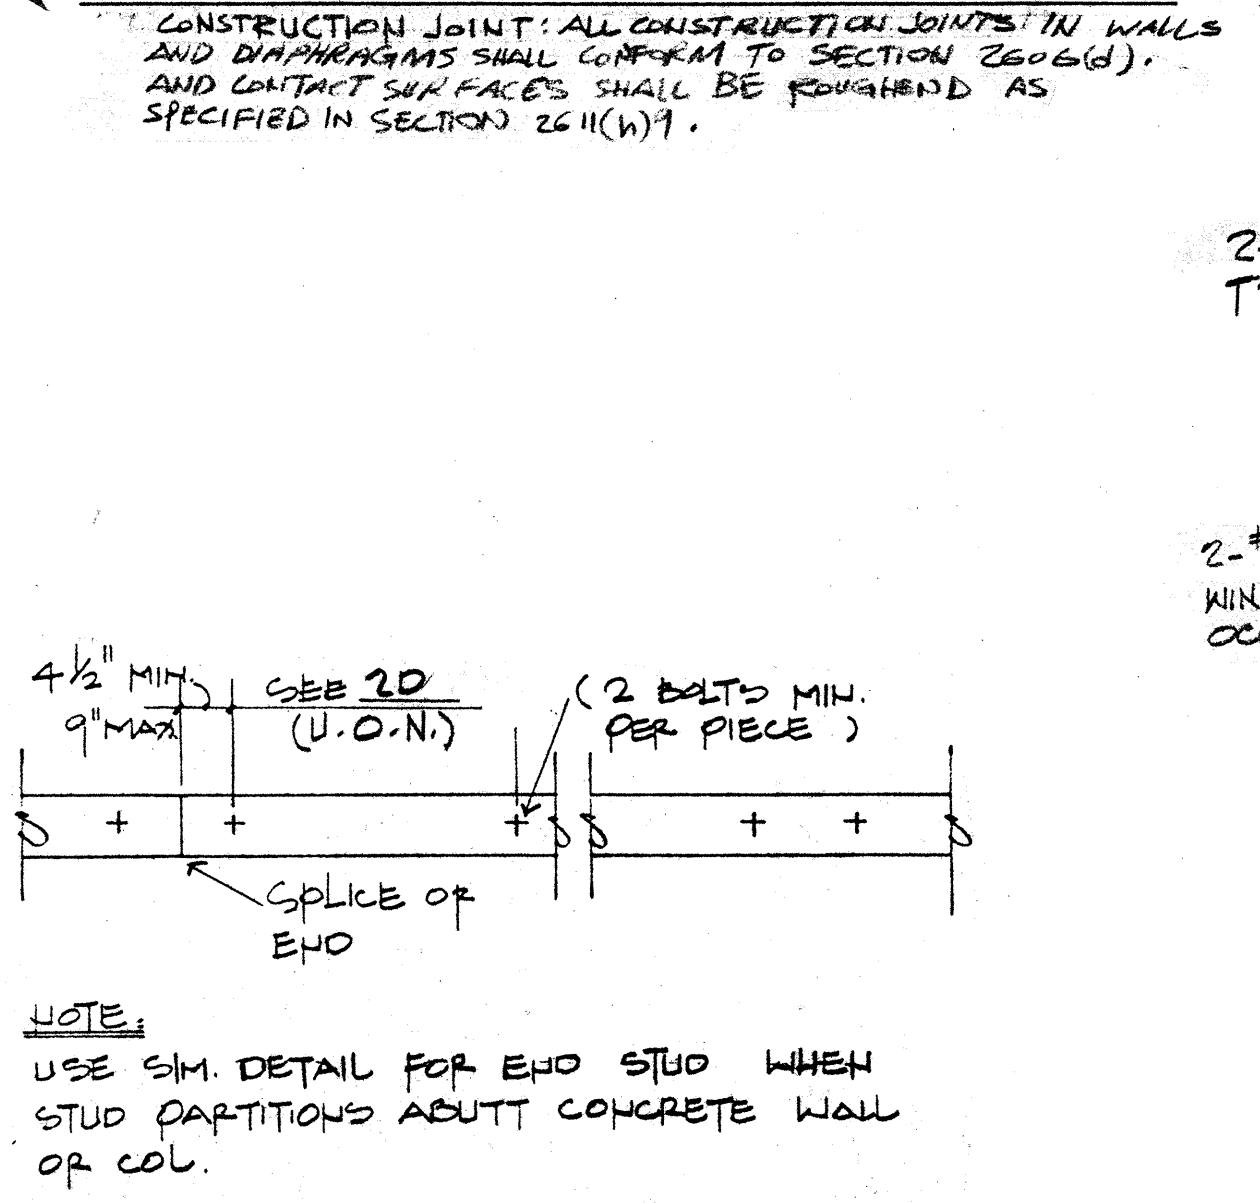 CONSTRUCTION JOINT: ALL CONSTRUCTION JOINTS IN WALLS
AND DIAPHRAGMS SHALL CONFORM TO SECTION 2606(d).
AND CONTACT SURFACES SHALL BE ROUGHEND AS
SPECIFIED IN SECTION 2611(h)9.
2-
2-#
WIN
OC
4 1/2" MIN.
9" MAX
SEE 2D
(U.O.N.)
(2 BOLTS MIN.
PER PIECE)
SPLICE OR
END
NOTE:
USE SIM. DETAIL FOR END STUD WHEN
STUD PARTITIONS ABUTT CONCRETE WALL
OR COL.